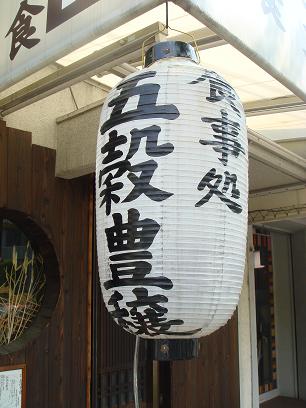 食事処
五穀豊穣
食